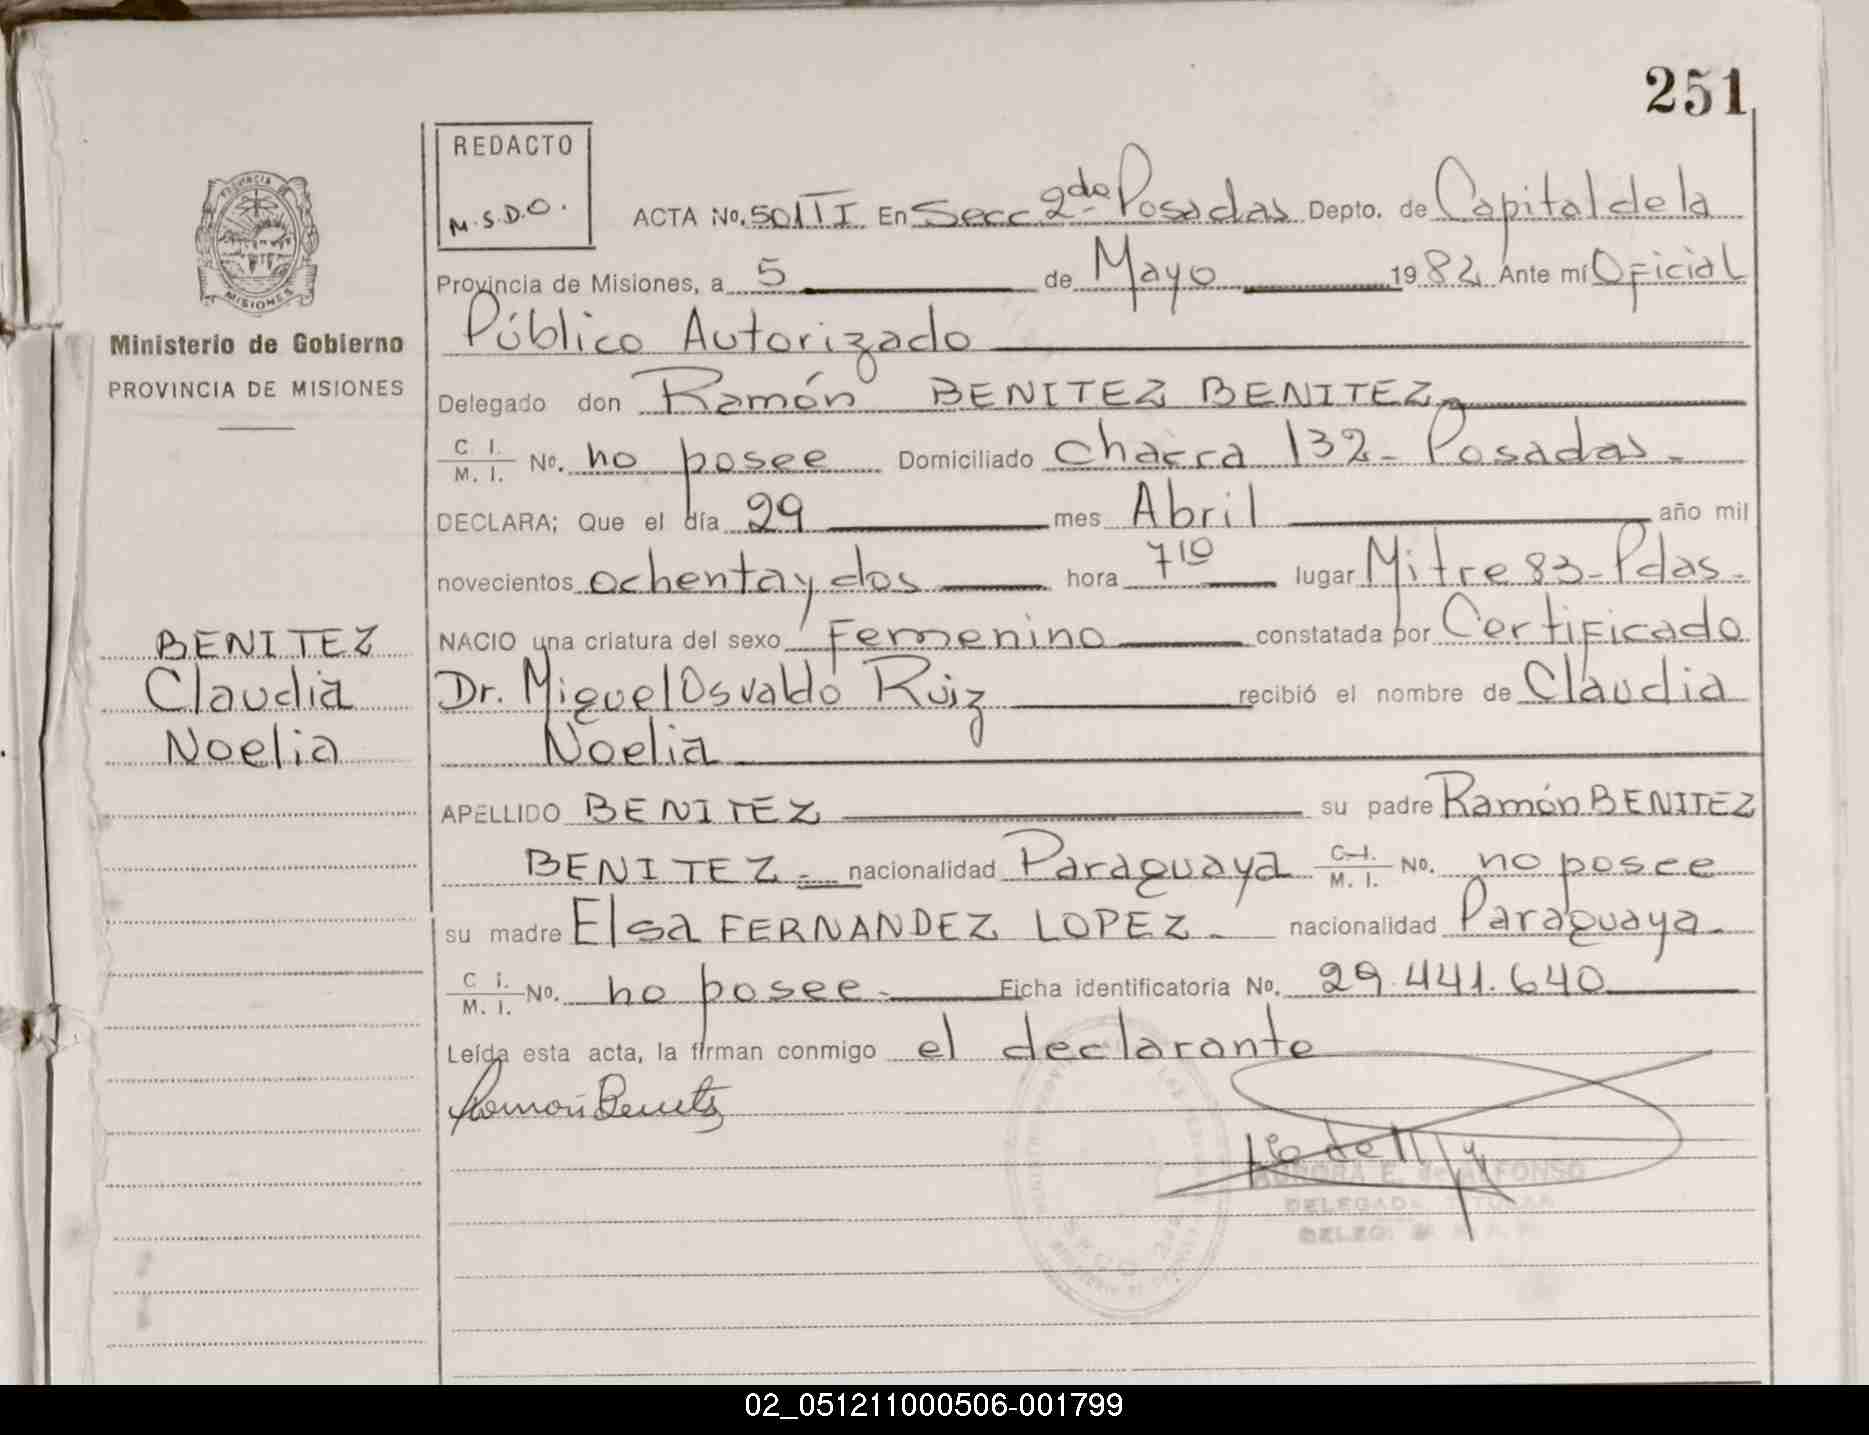 251
REDACTO
M.S.D.O.
PROVINCIA DE
MISIONES
Ministerio de Gobierno
PROVINCIA DE MISIONES
BENITEZ
Claudia
Noelia
ACTA No. 501 TI En Secc 2da Posadas Depto. de Capital de la
Provincia de Misiones, a 5 de Mayo 1982 Ante mí Oficial
Público Autorizado
Delegado don Ramón BENITEZ BENITEZ
C. I. / M. I. No. no posee Domiciliado Chacra 132 - Posadas.-
DECLARA; Que el día 29 mes Abril año mil
novecientos ochenta y dos hora 7 10 lugar Mitre 83 - Pdas.-
NACIO una criatura del sexo Femenino constatada por Certificado
Dr. Miguel Osvaldo Ruiz recibió el nombre de Claudia
Noelia
APELLIDO BENITEZ su padre Ramón BENITEZ
BENITEZ.- nacionalidad Paraguaya C. I. / M. I. No. no posee
su madre Elsa FERNANDEZ LOPEZ.- nacionalidad Paraguaya.-
C. I. / M. I. No. no posee.- Ficha identificatoria No. 29.441.640
Leída esta acta, la firman conmigo el declarante
Ramón Benitez
AURORA E. de ALFONSO
DELEGADA TITULAR
02_051211000506-001799